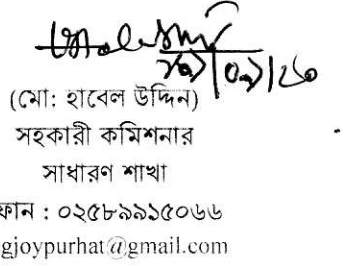 (মো: হাবেল উদ্দিন)
সহকারী কমিশনার
সাধারণ শাখা
ফোন : ০২৫৮৯৯১৫০৬৬
gjoypurhat@gmail.com